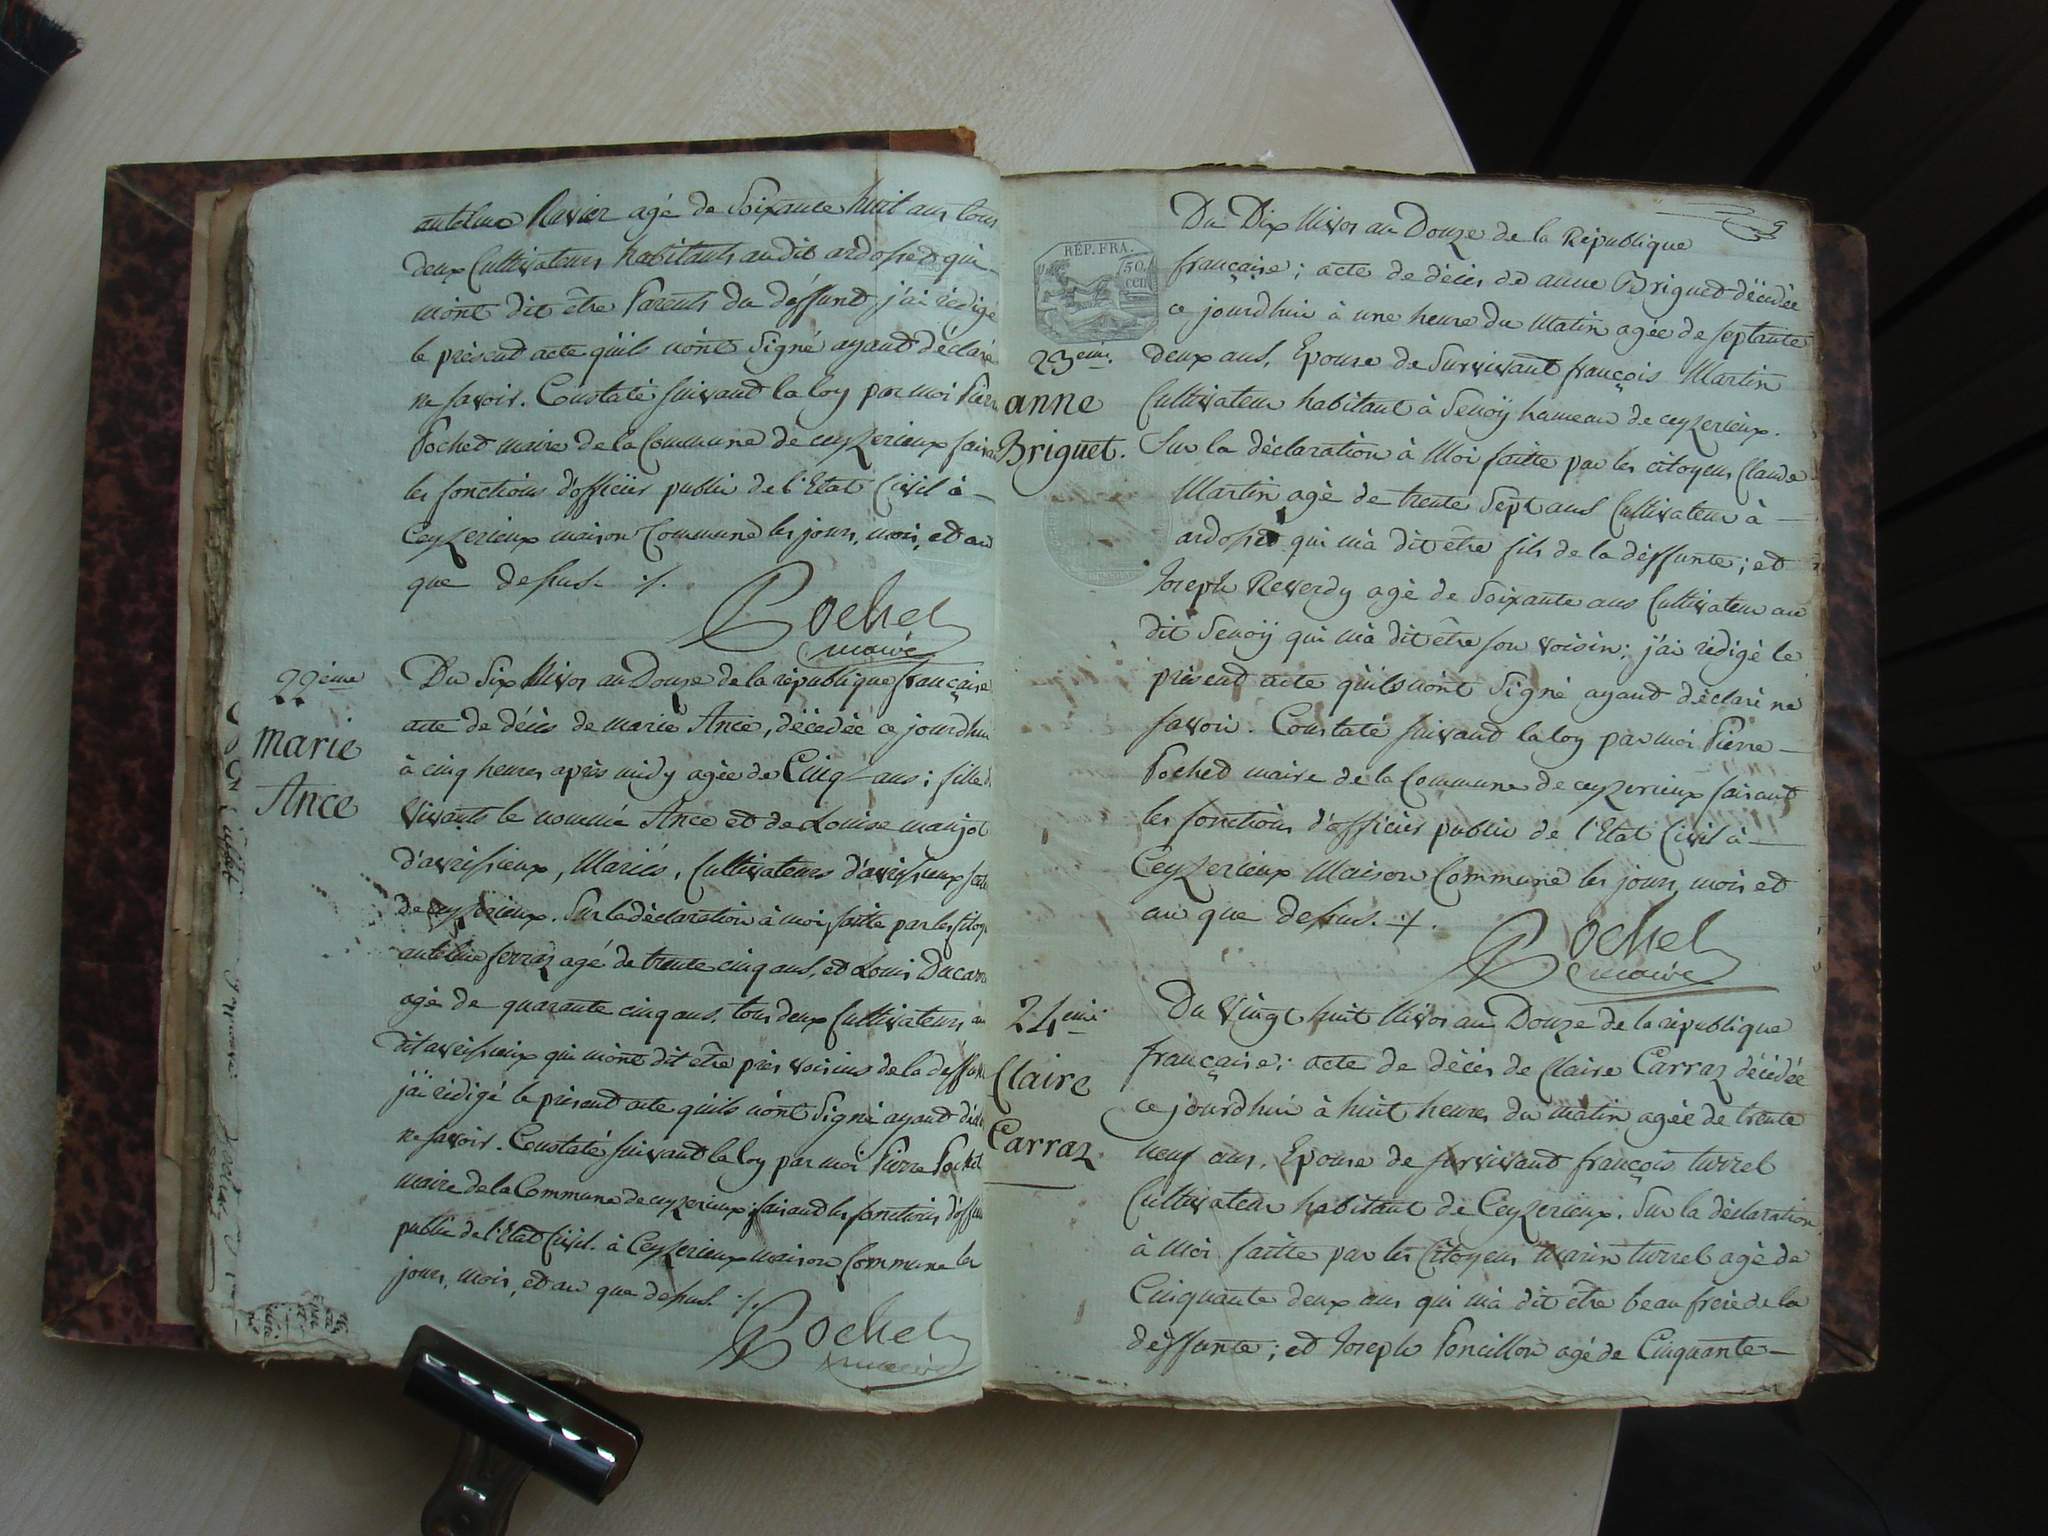 antelme Ravier agé de Soixante huit ans tous
deux Cultivateurs habitants audit ardosset qui
m'ont dit être Parents du déffunt j'ai rédigé
le présent acte qu'ils n'ont Signé ayant déclaré
ne savoir. Constaté suivant la loy par moi Pierre
Pochet maire de la Commune de ceyzerieux faisant
les fonctions d'officier public de l'Etat Civil à
Ceyzerieux maison Commune les jours, mois, et an
que dessus ./.
Pochet
maire
22ème
marie
Ance
Du Six Nivos an Douze de la république française
acte de décès de marie Ance, décédée ce jourdhui
à cinq heures après midy agée de Cinq ans; fille de
Vivants le nommé Ance et de Louise manjot
d'avrissieux, Mariés, Cultivateurs d'avrissieux
de ceyzerieux. Sur la déclaration à moi faitte par les
antelme ferraz agé de trente cinq ans, et Louis
agé de quarante cinq ans, tous deux Cultivateurs au
dit avrissieux qui m'ont dit être près voisins de la deffunte
j'ai rédigé le présent acte qu'ils n'ont Signé ayant
ne savoir. Constaté suivant la loy par moi Pierre Pochet
maire de la Commune de ceyzerieux faisant les fonctions d'officier
public de l'Etat Civil. à Ceyzerieux maison Commune les
jours, mois, et an que dessus ./.
Pochet
maire
9
RÉP. FRA.
50.
CEN
Du Dix Nivos an Douze de la République
française; acte de décès de anne Briguet décédée
ce jourdhui à une heure du Matin agée de septante
23eme.
anne
Briguet.
deux ans, Epouse de Survivant françois Martin
Cultivateur habitant à Senoÿ hameau de ceyzerieux.
Sur la déclaration à Moi faitte par les citoyens Claude
Martin agé de trente Sept ans Cultivateur à
ardosset qui m'a dit être fils de la déffunte; et
Joseph Reverdy agé de Soixante ans Cultivateur au
dit Senoÿ qui m'a dit être son voisin; j'ai rédigé le
présent acte qu'ils n'ont Signé ayant déclaré ne
savoir. Constaté suivant la loy par moi Pierre
Pochet maire de la Commune de ceyzerieux faisant
les fonctions d'officier public de l'Etat Civil à
Ceyzerieux Maison Commune les jours, mois et
an que dessus. ./.
Pochet
maire
24eme
Claire
Carraz
Du Vingt huit Nivos an Douze de la république
française; acte de décès de Claire Carraz décédée
ce jourdhui à huit heures du matin agée de trente
neuf ans, Epouse de survivant françois turrel
Cultivateur habitant de Ceyzerieux. Sur la déclaration
à Moi faitte par les Citoyens Marin turrel agé de
Cinquante deux ans qui m'a dit être beau frère de la
déffunte; et Joseph Poncillon agé de Cinquante